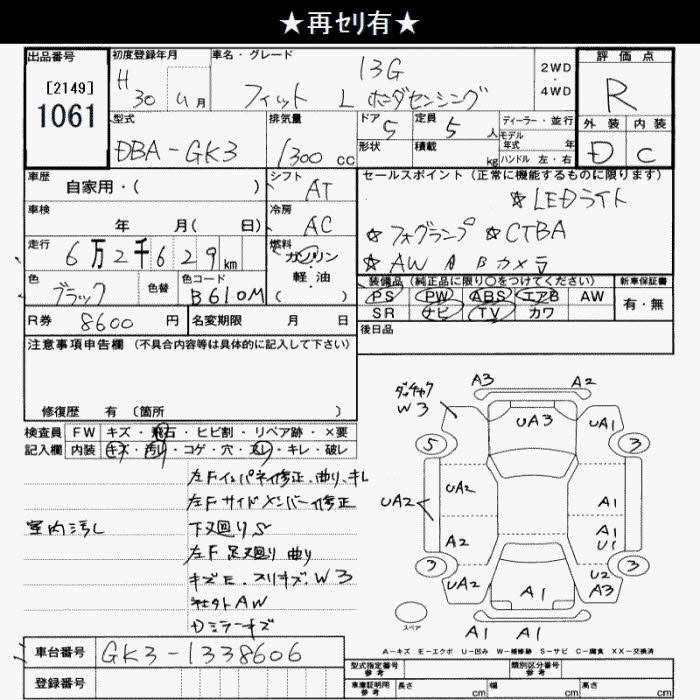 ★再ｾﾘ有★
出品番号 初度登録年月 車名・グレード 評価点
[2149] H 30 年 月 13G 2WD
1061 フィット L ホンダセンシング 4WD R
型式 排気量 ドア 定員 ディーラー・並行 外装 内装
DBA-GK3 1300 cc 5 5 人 モデル年式 年 D C
形状 積載 kg ハンドル 左・右
車歴 シフト セールスポイント (正常に機能するものに限ります)
自家用・( ) AT ☆LEDライト
車検 冷房
年 月( 日) AC ☆フォグランプ ☆CTBA
走行 燃料
6万2千629km ガソリン ☆AW Bカメラ
軽・油
色 色替 色コード 装備品 (純正品に限り○をつけてください) 新車保証書
ブラック B610M ( ) PS PW ABS エアB AW 有・無
R券 8600 円 名変期限 月 日 SR ナビ TV カワ
注意事項申告欄 (不具合内容等は具体的に記入して下さい) 後日品
修復歴 有 (箇所 )
検査員 FW キズ・飛石・ヒビ割・リペア跡・×要
記入欄 内装 キズ・汚れ・コゲ・穴・スレ・キレ・破レ
左Fインパネイ修正、曲り、キレ
左Fサイドメンバー修正
室内汚し 下廻りS
左F足廻り曲り
キズE、スリキズ、W3
社外AW
Dミラーキズ
A3 A2
W3 UA3 UA1
5 3
UA2 UA2 A1
A2 A1
U1
3 3
UA2 A1 U2
A3
スペア A1 A1
A-キズ E-エクボ U-凹み W-補修跡 S-サビ C-腐食 XX-交換済
車台番号 GK3-1338606
型式指定番号 参考 類別区分番号 参考
登録番号 車庫証明用 参考 長さ cm 幅 cm 高さ cm